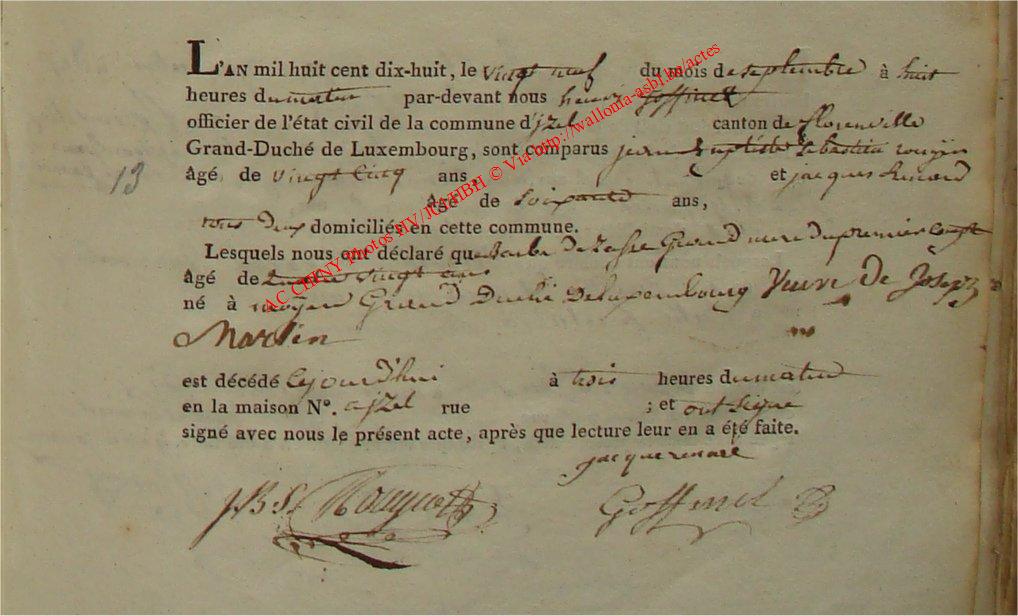 L'AN mil huit cent dix-huit, le vingt neuf du mois de septembre à huit
heures du matin par-devant nous henry Goffinet
officier de l'état civil de la commune d'jzel canton de florenville
Grand-Duché de Luxembourg, sont comparus jean Baptiste Sebastien
13
âgé de vingt Cinq ans, et jacques Renard
âgé de Soixante ans,
tous deux domiciliés en cette commune.
Lesquels nous ont déclaré que Barbe Gerard mere du premier
âgé de quatre vingt ans
né à moyen Grand Duché De Luxembourg Veuve De Joseph
Martin
est décédé Cejourd'hui à trois heures du matin
en la maison N°. a jzel rue ; et ont Signé
signé avec nous le présent acte, après que lecture leur en a été faite.
jacque renard
JBS Goffinet
AC CHINY Photos HV/JCATHBH © Via http://wallonia-asbl.be/actes